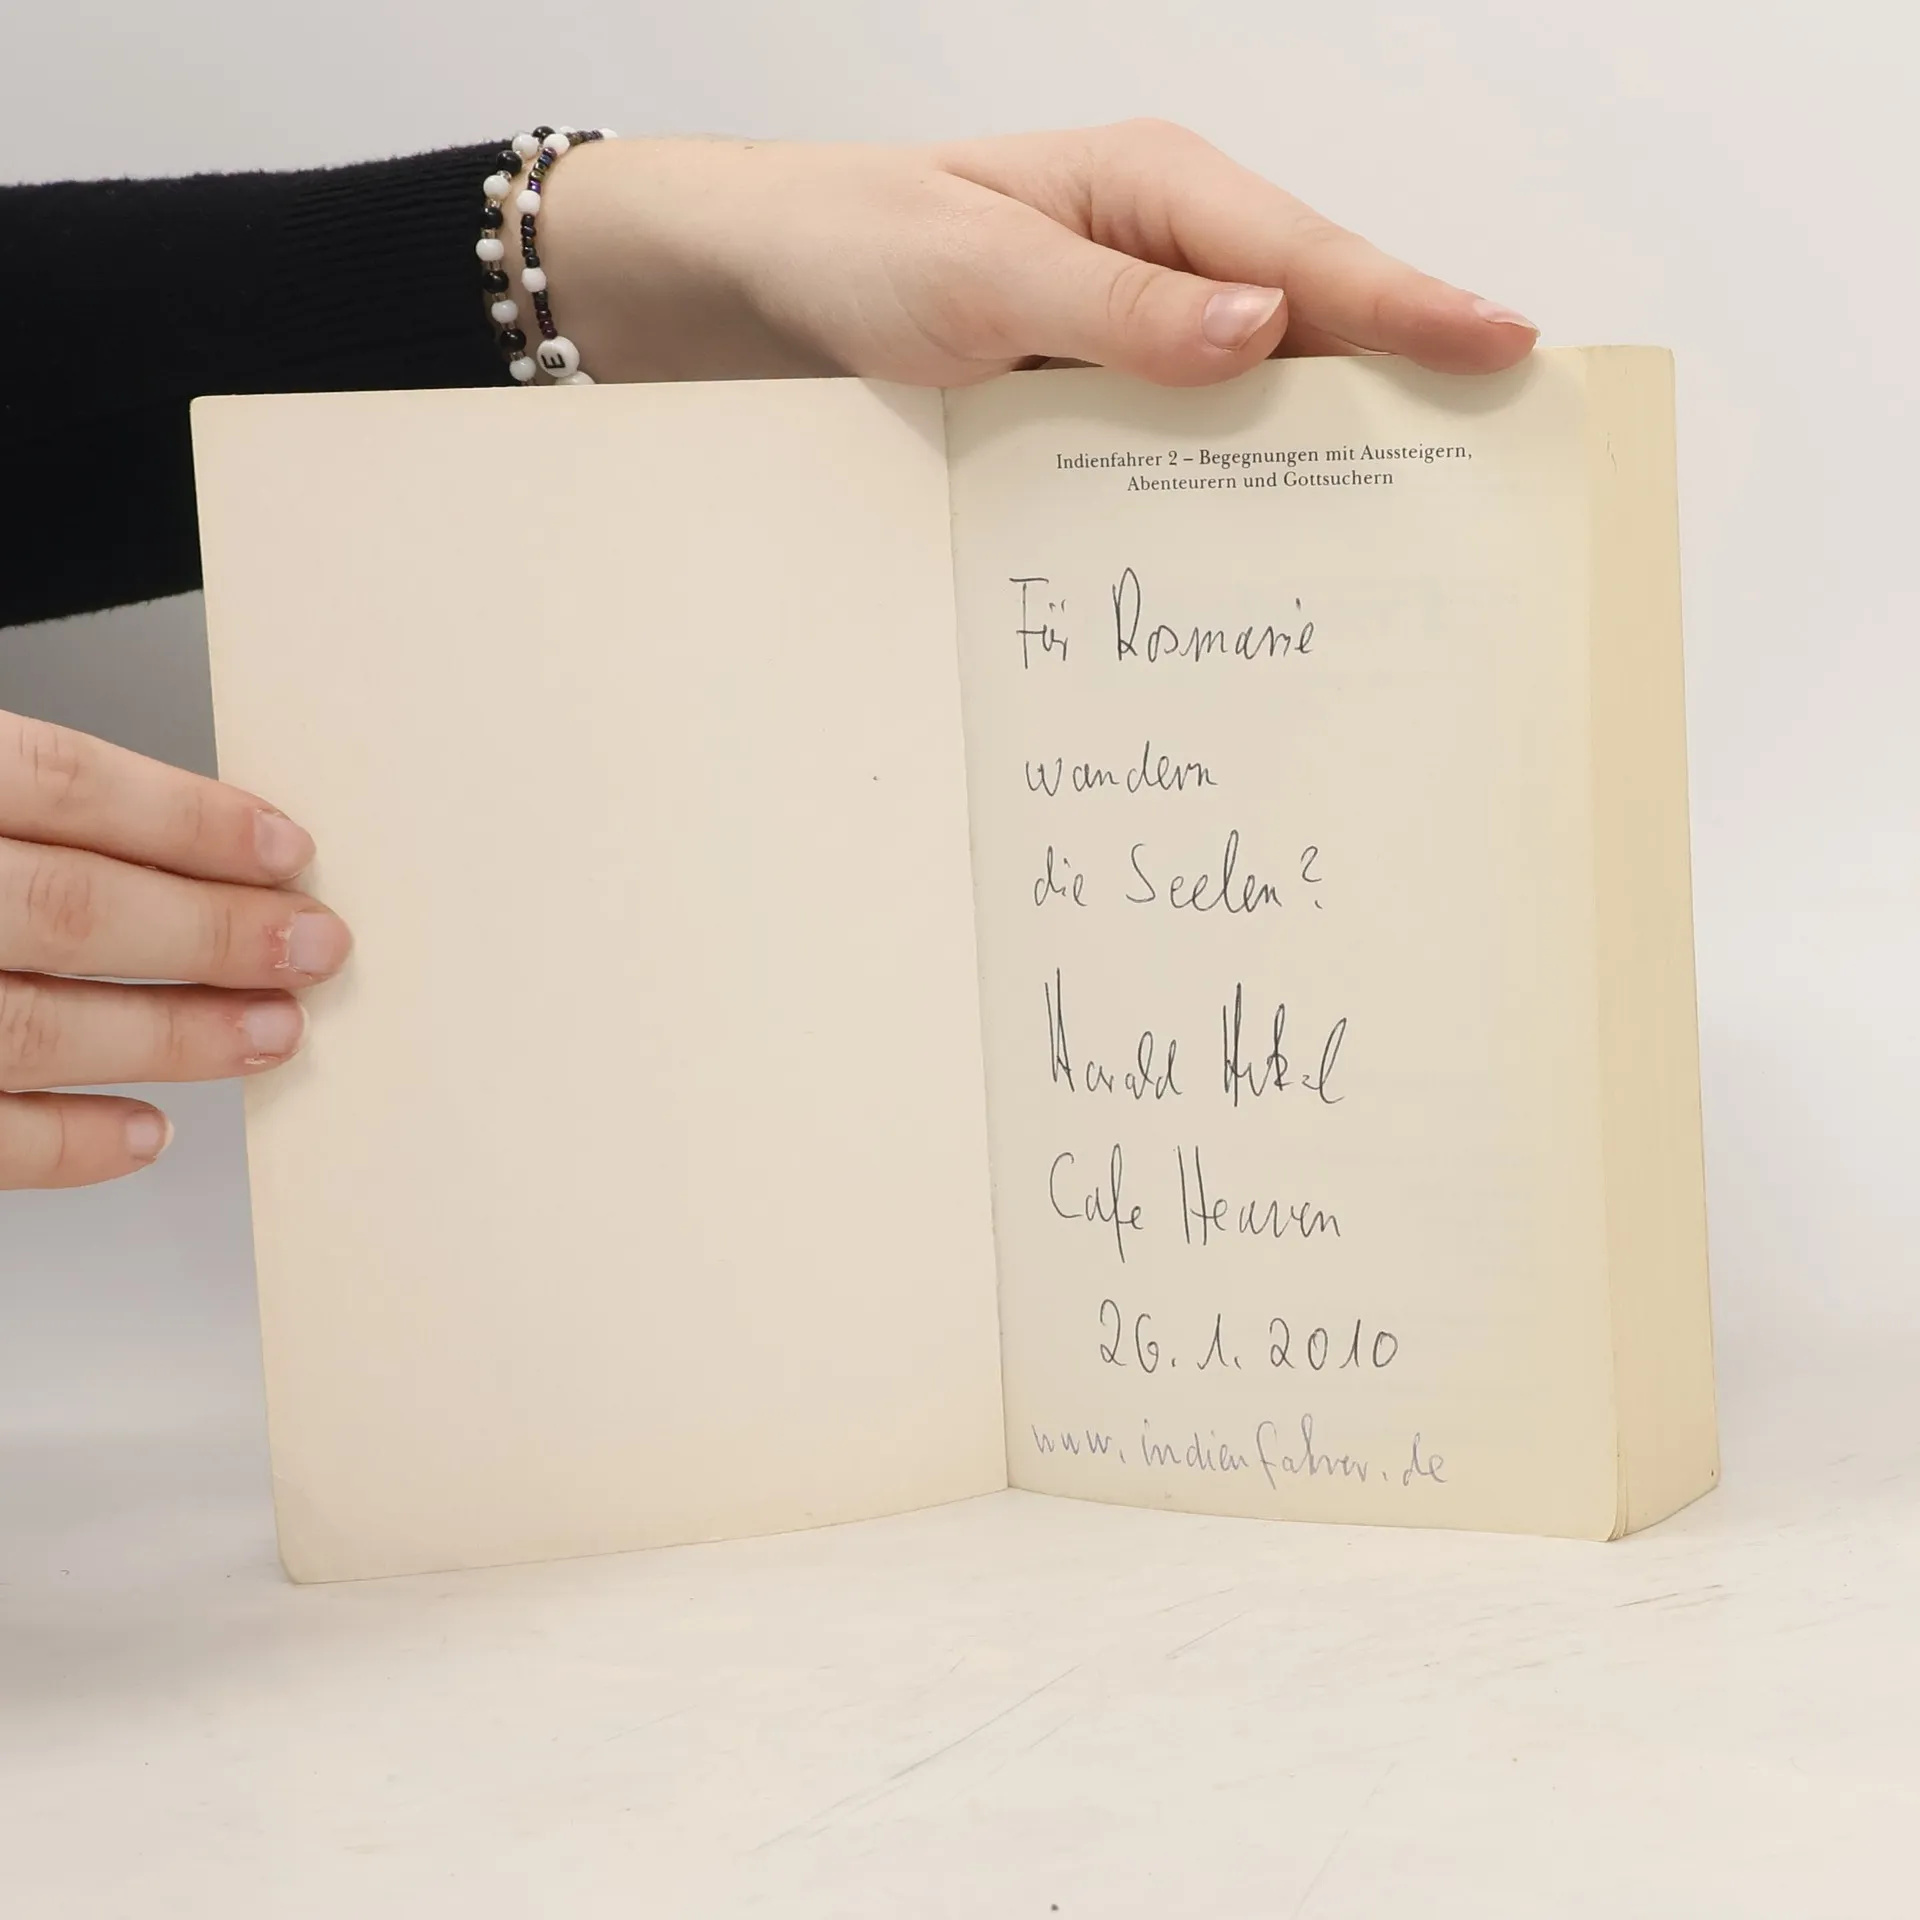 Indienfahrer 2 – Begegnungen mit Aussteigern,
Abenteurern und Gottsuchern
Für Rosmarie
wandern
die Seelen?
Harald
Cafe Heaven
26.1.2010
www.indienfahrer.de
E